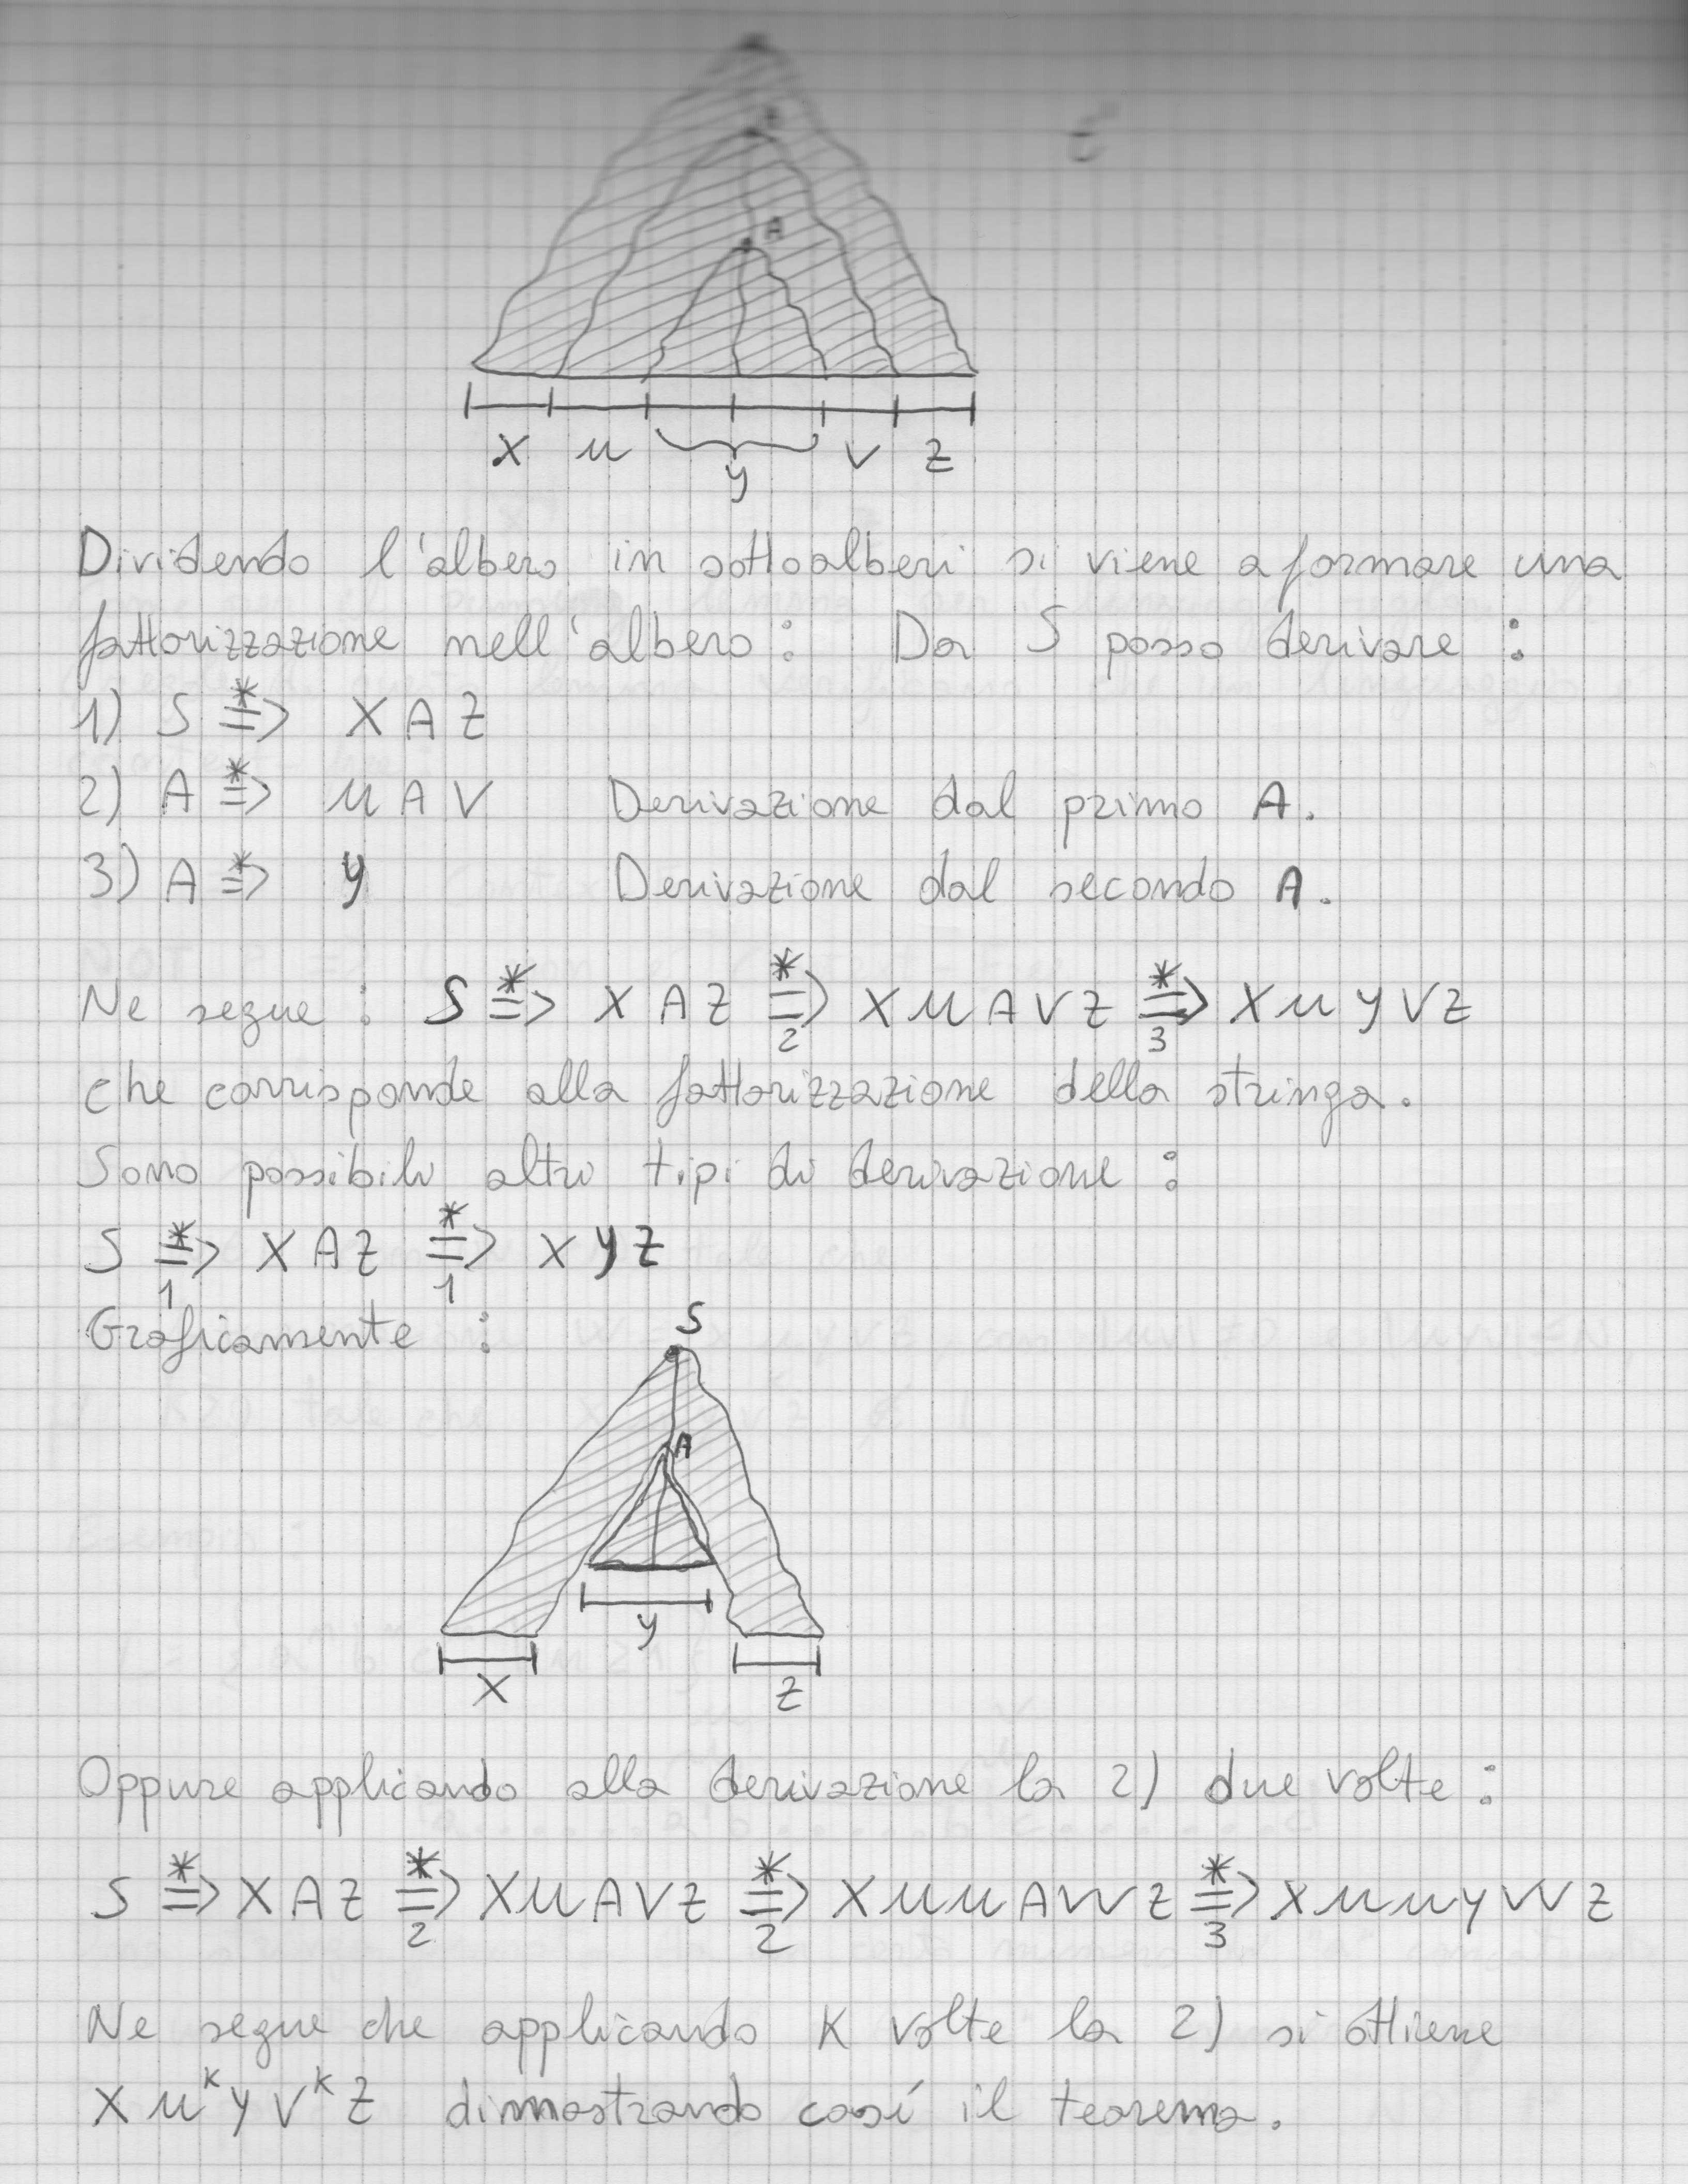 A
x u v z
y
Dividendo l'albero in sottoalberi si viene a formare una
fattorizzazione nell'albero: Da S posso derivare:
1) S *=> X A Z
2) A *=> u A V Derivazione dal primo A.
3) A *=> y Derivazione dal secondo A.
Ne segue: S *=> X A Z *=>2 X u A V Z *=>3 X u y V Z
che corrisponde alla fattorizzazione della stringa.
Sono possibili altri tipi di derivazione:
S *=>1 X A Z *=>1 X y Z
Graficamente:
S
A
y
X Z
Oppure applicando alla derivazione la 2) due volte:
S *=> X A Z *=>2 X u A V Z *=>2 X u u A V V Z *=>3 X u u y V V Z
Ne segue che applicando K volte la 2) si ottiene
X u^K y V^K Z dimostrando così il teorema.